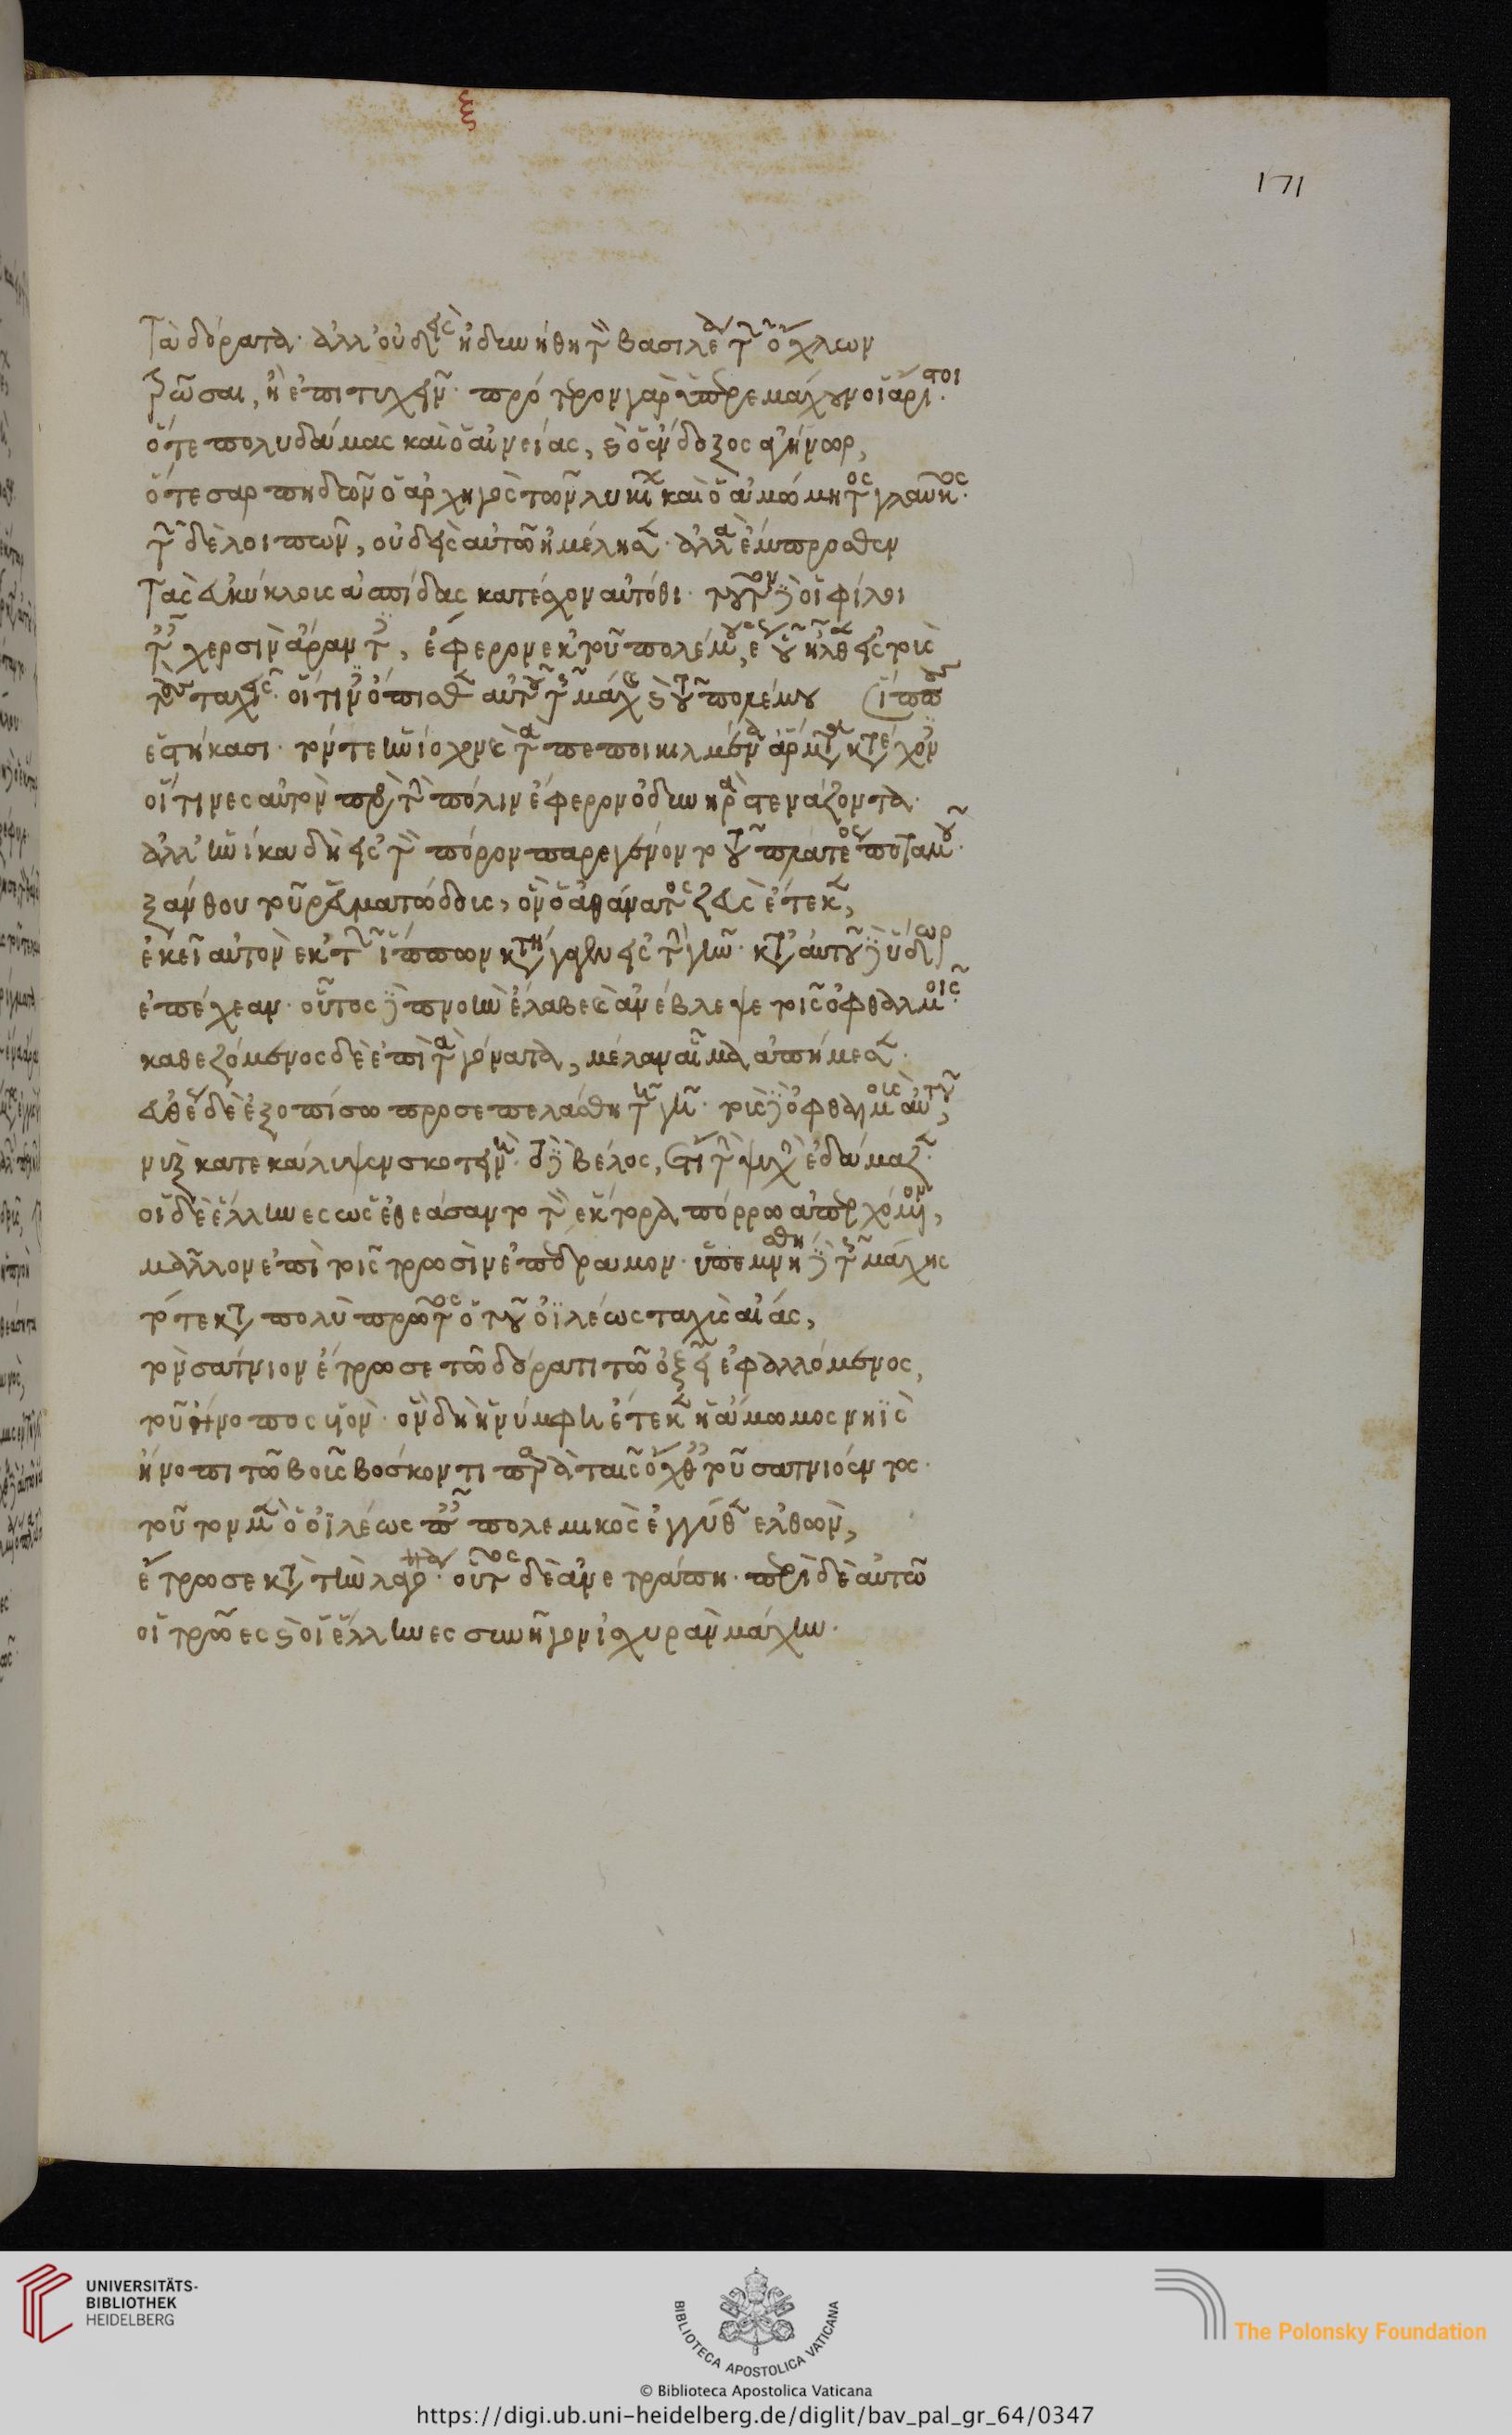 Τὰ δόρατα· ἀλλ' οὐδεὶς ἠδυνήθη τὸν βασιλέα τῶν ὄχλων
τρῶσαι, ἢ ἐπιτυχεῖν· πρότερον γὰρ ὑπερεμάχουν οἱ ἄριστοι·
ὅ τε πολυδάμας καὶ ὁ αἰνείας, καὶ ὁ ἔνδοξος ἀγήνωρ,
ὅ τε σαρπηδὼν ὁ ἀρχηγὸς τῶν λυκίων καὶ ὁ ἀμώμητος γλαῦκος·
τῶν δὲ λοιπῶν, οὐδεὶς αὐτῶ ἠμέλησεν· ἀλλὰ ἔμπροσθεν
Τὰς εὐκύκλους ἀσπίδας κατέσχον αὐτόθι· τοῦτον δὲ οἱ φίλοι
ταῖς χερσὶν ἄραντες, ἔφερον ἐκ τοῦ πολέμου, ἕως οὗ ἦλθεν εἰς τοὺς
τοὺς ταχεῖς· οἵτινες ὄπισθεν αὐτοῦ τῆς μάχης καὶ τοῦ πολέμου ἵππους
ἑστήκασι· τόν τε ἡνίοχον καὶ τὰ πεποικιλμένα ἅρματα κατέχοντες
οἵτινες αὐτὸν πρὸς τὴν πόλιν ἔφερον ὀδυνηρὰ στενάζοντα·
ἀλλ' ἡνίκα δὴ εἰς τὸν πόρον παρεγένοντο τοῦ πλατέος ποταμοῦ·
ξάνθου τοῦ ῥευματώδους, ὃν ὁ ἀθάνατος ζεὺς ἔτεκεν,
ἐκεῖ αὐτὸν ἐκ τῶν ἵππων κατήγαγον εἰς τὴν γῆν· κατ' αὐτοῦ δὲ ὕδωρ
ἐπέχεαν· οὗτος δὲ πνοὴν ἔλαβε καὶ ἀνέβλεψε τοῖς ὀφθαλμοῖς·
καθεζόμενος δὲ ἐπὶ τὰ γόνατα, μέλαν αἷμα ἀπήμεσεν·
εὐθέως δὲ ἐξοπίσω προσεπελάσθη τῇ γῇ· τοὺς δὲ ὀφθαλμοὺς αὐτοῦ,
νὺξ κατεκάλυψεν σκοτεινή· τὸ δὲ βέλος, ἔτι τὴν ψυχὴν ἐδάμαζεν·
οἱ δὲ ἕλληνες ὡς ἐθεάσαντο τὸν ἕκτορα πόρρω ἀπερχόμενον,
μᾶλλον ἐπὶ τοῖς τρωσὶν ἐπέδραμον· ὑπεμνήσθησαν δὲ τῆς μάχης
τότε καὶ πολὺ πρῶτος ὁ τοῦ ὀϊλέως ταχὺς αἴας,
τὸν σάτνιον ἔτρωσε τῶ δόρατι τῶ ὀξεῖ ἐφαλλόμενος,
τοῦ ἤνοπος υἱόν· ὃν δὴ ἡ νύμφη ἔτεκεν ἡ ἄμωμος νηῒς
ἤνοπι τῶ βοῦς βόσκοντι παρὰ ταῖς ὄχθαις τοῦ σατνιόεντος·
τοῦτον μὲν ὁ ὀϊλέως παῖς πολεμικὸς ἐγγύθεν ἐλθὼν,
ἔτρωσε κατὰ τὴν λαγόνα· οὗτος δὲ ἀνετράπη· περὶ δὲ αὐτῶ
οἱ τρῶες καὶ οἱ ἕλληνες συνῆγον ἰσχυρὰν μάχην·
ξ
171
UNIVERSITÄTS-
BIBLIOTHEK
HEIDELBERG
BIBLIOTECA APOSTOLICA VATICANA
The Polonsky Foundation
© Biblioteca Apostolica Vaticana
https://digi.ub.uni-heidelberg.de/diglit/bav_pal_gr_64/0347